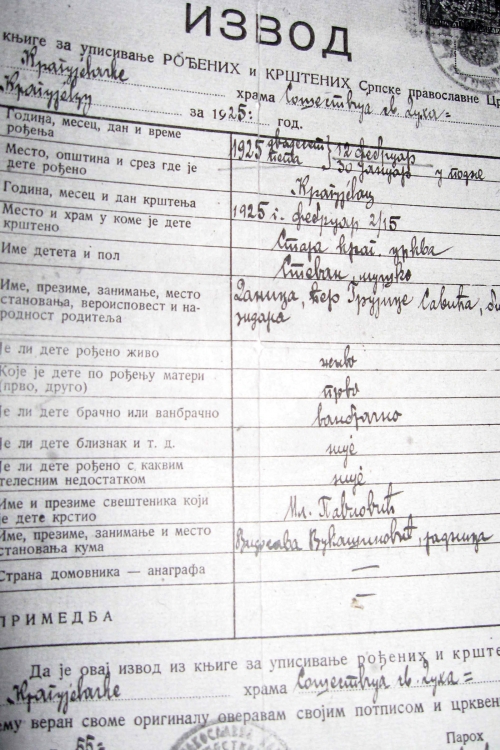 ИЗВОД
књиге за уписивање РОЂЕНИХ и КРШТЕНИХ Српске православне Ц
Крагујевачке храма Сошествија св. Духа =
Крагујевцу за 1925: год.
Година, месец, дан и време рођења
1925 двадесет пета 12 фебруар 30 јануар у подне
Место, општина и срез где је дете рођено
Крагујевац
Година, месец и дан крштења
1925 г. фебруар 2/15
Место и храм у коме је дете крштено
Стара краг. црква
Име детета и пол
Стеван, мушко
Име, презиме, занимање, место становања, вероисповест и народност родитеља
Даница, кћер Грујице Савића, зидара
Је ли дете рођено живо
живо
Које је дете по рођењу матери (прво, друго)
прво
Је ли дете брачно или ванбрачно
ванбрачно
Је ли дете близнак и т. д.
није
Је ли дете рођено с каквим телесним недостатком
није
Име и презиме свештеника који је дете крстио
Мл. Павловић
Име, презиме, занимање и место становања кума
Видосава Вукашиновић, радница
Страна домовника — анаграфа
—
ПРИМЕДБА
—
Да је овај извод из књиге за уписивање рођених и крште
Крагујевачке храма Сошествија св. Духа =
ему веран своме оригиналу оверавам својим потписом и црквен
55= Парох